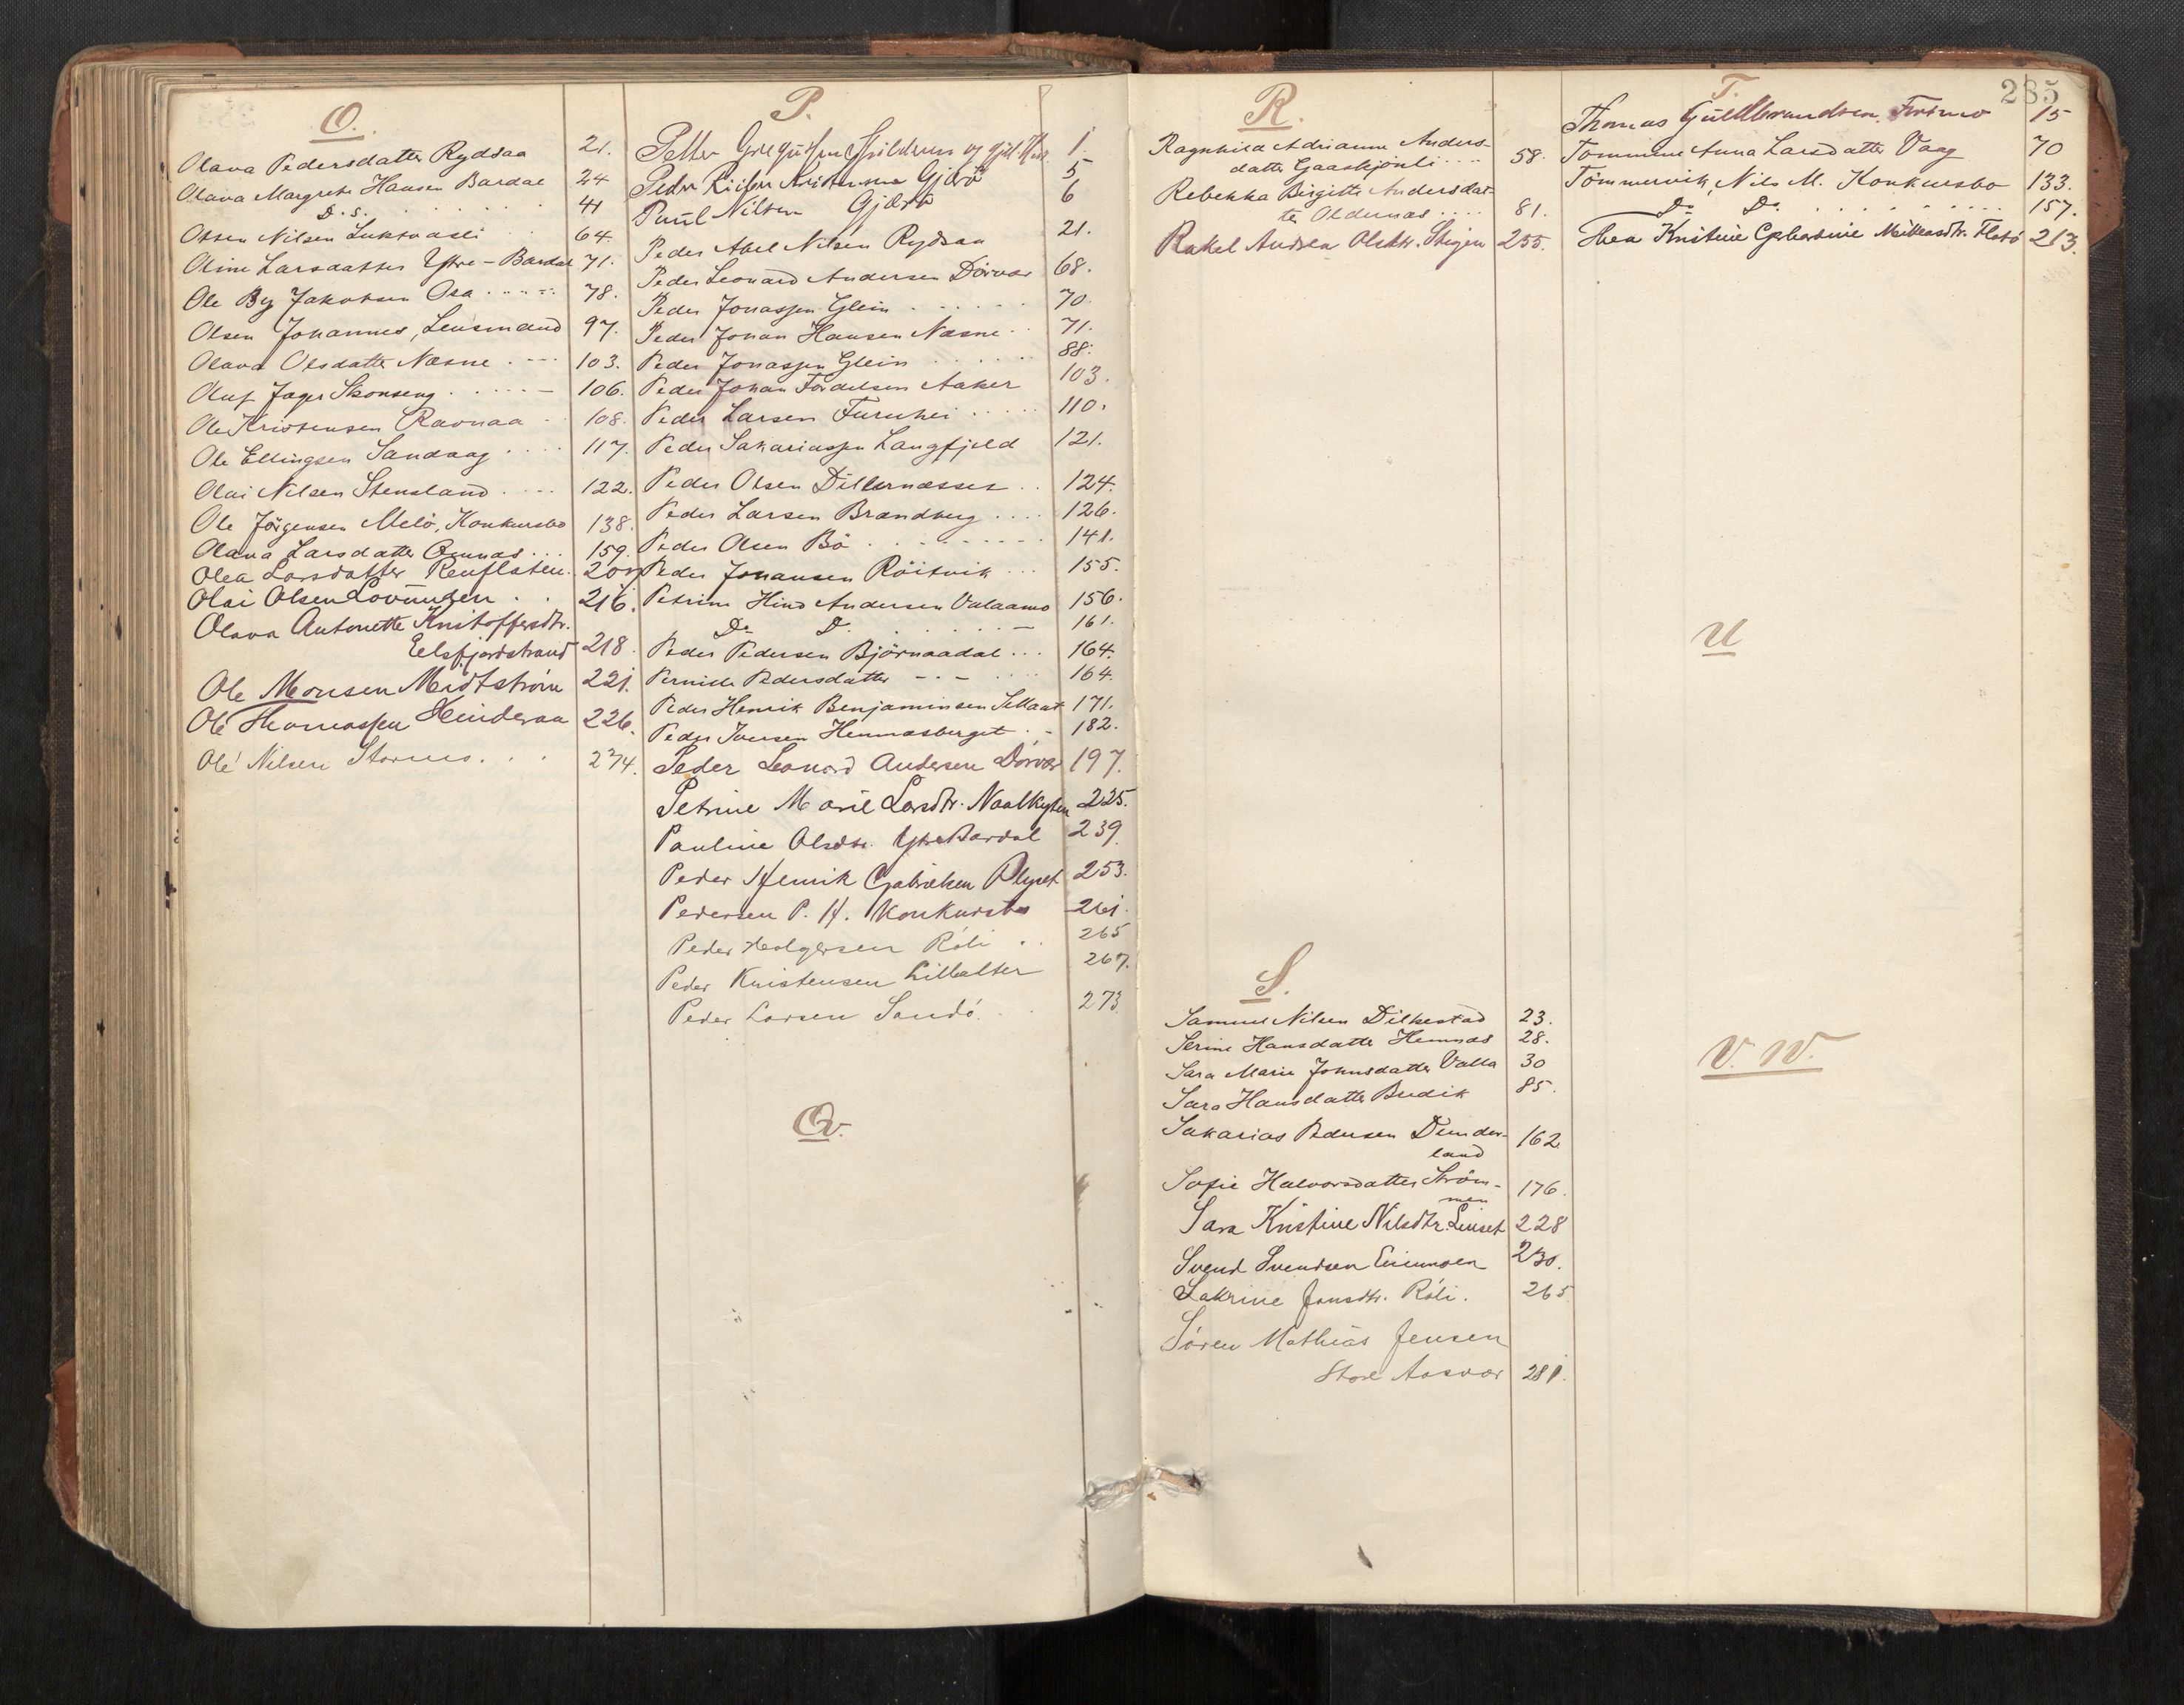 O.
Olava Pedersdatter Rydsaa 21.
Olava Margrete Hansen Bardal 24
D. S. 41
Olsen Nilsen Luktvasli 64.
Oline Larsdatter Ytre-Bardal 71.
Ole By Jakobsen Osa 78.
Olsen Johannes, Lensmand 97.
Olava Olsdatter Nesne 103.
Oluf Jager Skonseng 106.
Ole Kristensen Ravnaa 108.
Ole Ellingsen Sandaag 117.
Olai Nilsen Stensland 122.
Ole Jörgensen Melö, Konkursbo 138.
Olava Larsdatter 159.
Olea Larsdatter Renflaten
Olai Olsen Lovunden 216.
Olava Antonette Kristoffersdtr.
Elsfjordstrand 218.
Ole Monsen Midtström 221.
Ole Thomassen Hinderaa 226.
Ole Nilsen 274.
P.
Petter og 1.
Peder Gjerö 5
Paul Nilsen Gjerö 6
Peder Abel Nilsen Rydsaa 21.
Peder Leonard Andersen Dörvær 68.
Peder Jonassen Glein 70.
Peder Johan Hansen Nesne 71.
Peder Jonassen Glein 88.
Peder Johan Fordelsen Aaker 103.
Peder Larsen Furuhei 110.
Peder Sakariassen Langfjeld 121.
Peder Olsen Dillernesset 124.
Peder Larsen Brandberg 126.
Peder Olsen Bö 141.
Peder Johansen Röitvik 155.
Petrine Hind Andersen 156.
Do D. 161.
Peder Pedersen Björnaadal 164.
Pernille Pedersdatter 164.
Peder Henrik Benjaminsen 171.
Peder Iversen Hemnesberget 182.
Peder Leonard Andersen Dörvær 197.
Petrine Marie Larsdtr. 225.
Pauline Olsdtr. Ytre Bardal 239.
Peder Henrik Gabrielsen 253.
Pedersen P. H. Konkursbo 261.
Peder Holgersen Röli 265
Peder Kristensen Lillealter 267.
Peder Larsen Sandö 273
Q.
R.
Ragnhild Adrianne Anders-
datter Gaaskjönli 58.
Rebekka Birgitte Andersdat-
ter Oldernes 81.
Rakel Andrea Olsdtr. Stigen 255.
S.
Samuel Nilsen Dilkestad 23.
Serine Hansdatter Hemnes 28.
Sara Marie Johnsdatter Valla 30
Sara Hansdatter Bredik 85.
Sakarias Pedersen Dunder-
land 162
Sofie Halvorsdatter Ström-
men 176.
Sara Kristine Nilsdtr. Leirset 228
Svend Svendsen 230.
Sakrine Jonsdtr. Röli. 265
Sören Mathias Jensen
Store Aasvær 281.
T. 285
Thomas Gulbrandsen Forsmo 15
Tommine Anna Larsdatter Vaag 70
Tömmervik, Nils M. Konkursbo 133.
Do Do 157.
Thea Kristine Flatö 213.
U
V. W.